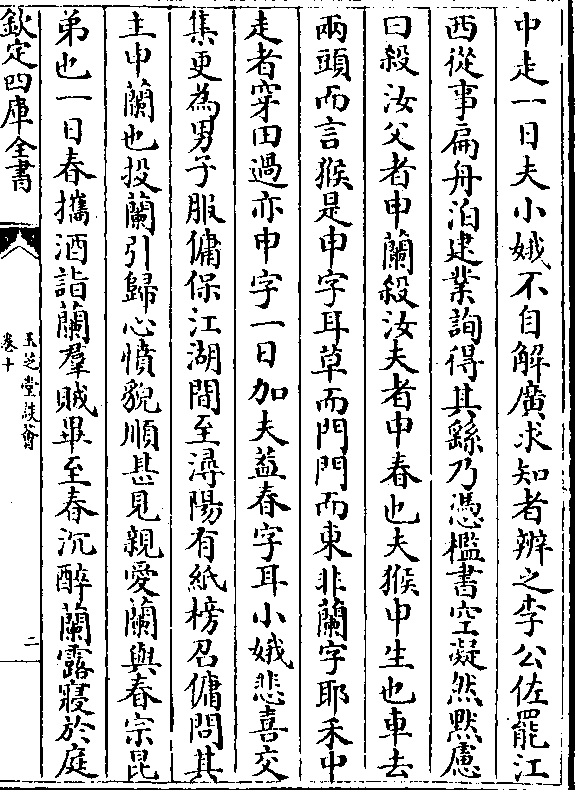 中走一日夫小娥不自解廣求知者辨之李公佐罷江
西從事扁舟泊建業詢得其繇乃憑檻書空凝然默慮
曰殺汝父者申蘭殺汝夫者申春也夫猴申生也車去
兩頭而言猴是申字耳草而門門而東非蘭字耶禾中
走者穿田過亦申字一日加夫葢春字耳小娥悲喜交
集更為男子服傭保江湖間至潯陽有紙榜召傭問其
主申蘭也投蘭引歸心憤貌順甚見親愛蘭與春宗昆
弟也一日春攜酒詣蘭羣賊畢至春沉醉蘭露寢於庭
欽定四庫全書
玉芝堂談薈
卷十
二